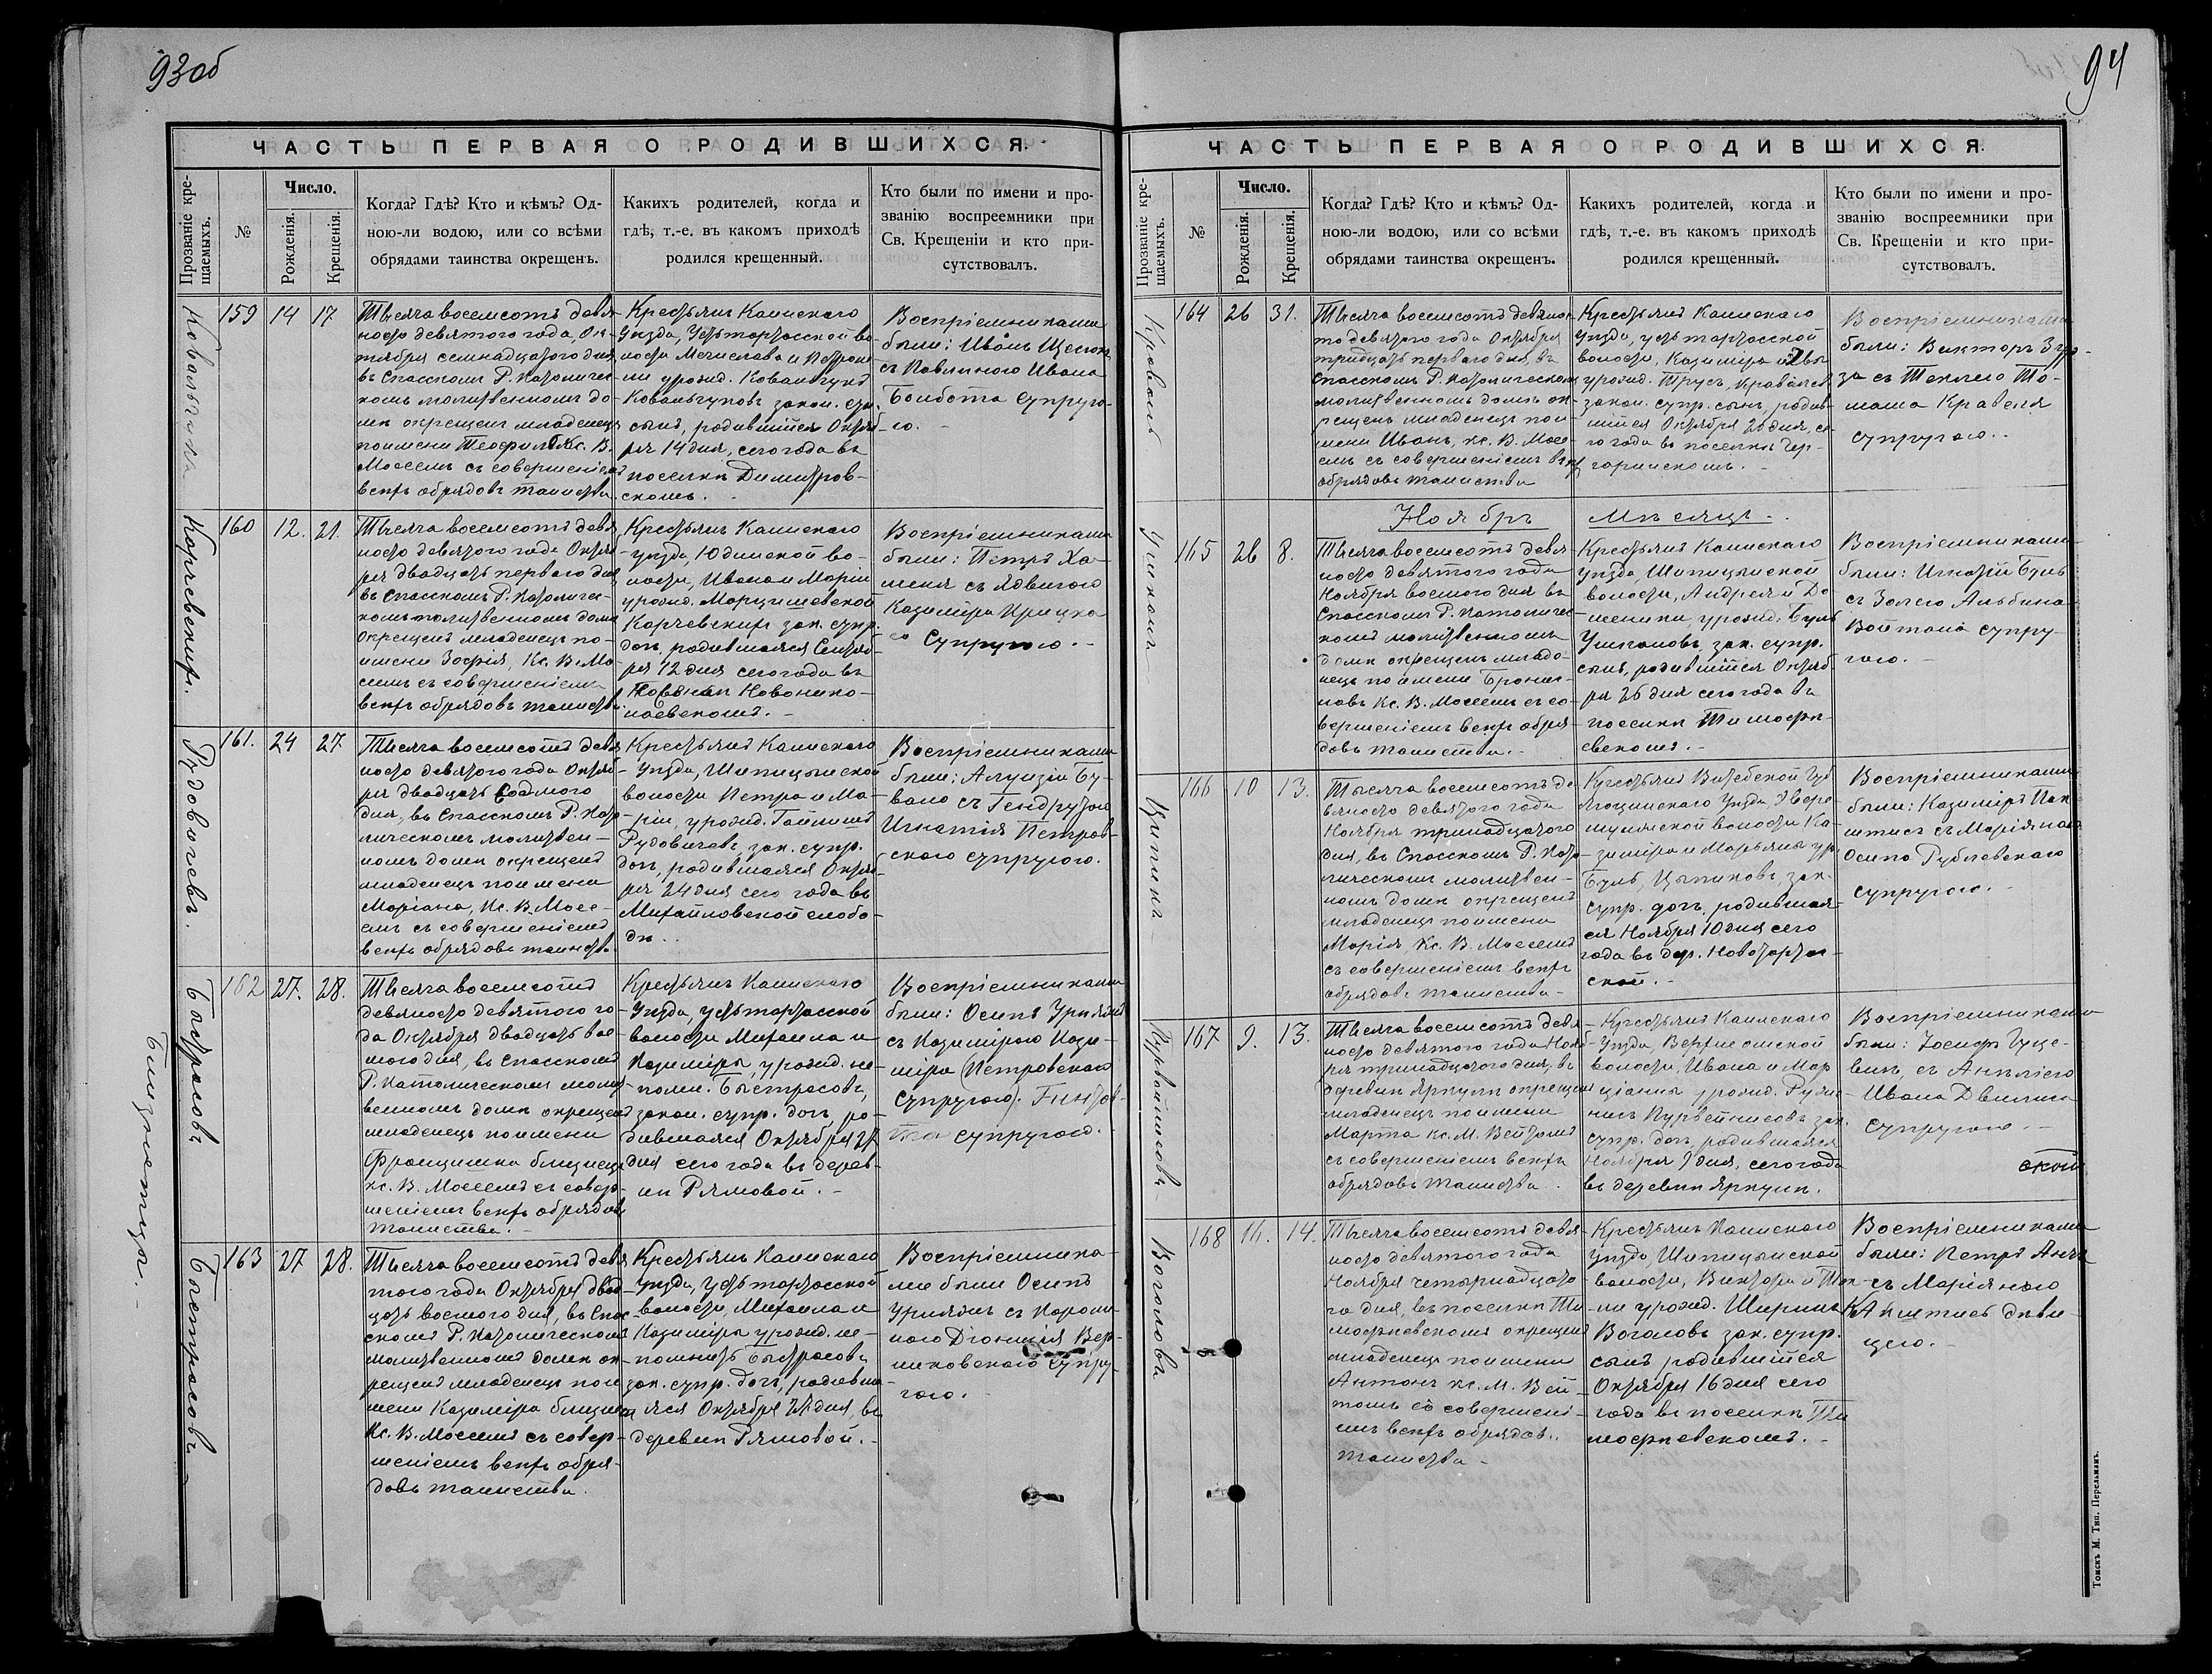 93об
ЧАСТЬ ПЕРВАЯ О РОДИВШИХСЯ.
Прозваніе кре-
щаемыхъ.
№
Число.
Рожденія.
Крещенія.
Когда? Гдѣ? Кто и кѣмъ? Од-
ною-ли водою, или со всѣми
обрядами таинства окрещенъ.
Какихъ родителей, когда и
гдѣ, т.-е. въ какомъ приходѣ
родился крещенный.
Кто были по имени и про-
званію воспреемники при
Св. Крещеніи и кто при-
сутствовалъ.
159 14 17
Тысяча восемсотъ девя-
носто девятого года, Ок-
тября семнадцатого дня
въ Спасскомъ Р. Католичес-
комъ молитвенномъ до-
мѣ окрещенъ младенецъ
по имени Теофилъ Кс. В.
Мосеемъ съ совершеніемъ
всѣхъ обрядовъ таинства.
Крестьянъ Каинскаго
Уѣзда, Устьтартасской во-
лости Мечислава и Петрони-
ли урожд.
закон. супр.
сынъ, родившійся Октяб-
ря 14 дня, сего года въ
поселкѣ Димитров-
скомъ.
Воспріемниками
были: Иванъ
съ Павлиною Ивана
супруго-
ю.
160 12. 21.
Тысяча восемсотъ девя-
носто девятого года Октяб-
ря двадцать первого дня
въ Спасскомъ Р. Католичес-
комъ молитвенномъ домѣ
окрещенъ младенецъ по
имени Зофія, Кс. В. Мо-
сеемъ съ совершеніемъ
всѣхъ обрядовъ таинства
Крестьянъ Каинскаго
уѣзда, Юдинской во-
лости, Ивана и Маріи
урожд. Марцишевской
Карчевскихъ зак. супр.
дочь, родившаяся Сентяб-
ря 12 дня сего года въ
Новонико-
лаевскомъ.
Воспріемниками
были: Петръ Ха-
меня съ Ядвигою
Казиміра
Супругою.
161. 24 27
Рудовичевъ.
Тысяча восемсотъ девя-
носто девятого года Октяб-
ря двадцать седмого
дня, въ Спасскомъ Р. Като-
лическомъ молитвен-
номъ домѣ окрещенъ
младенецъ по имени
Маріана, Кс. В. Мосе-
емъ съ совершеніемъ
всѣхъ обрядовъ таинства
Крестьянъ Каинскаго
Уѣзда, Шипицынской
волости Петра и Ма-
ріи, урожд.
Рудовичевъ, зак. супр.
дочь, родившаяся Октяб-
ря 24 дня сего года въ
Михайловской слобо-
дѣ.
Воспріемниками
были: Алуизій Бу-
вало съ Гендрутою
Игнатія Петров-
скаго супругою.
162 27. 28.
Быстрасовъ
Близнецица.
Тысяча восемсотъ
девяносто девятого го-
да Октября двадцать вос-
мого дня, въ Спасскомъ
Р. Католическомъ молит-
венномъ домѣ окрещенъ
младенецъ по имени
Францишка близнецъ
кс. В. Мосеемъ съ совер-
шеніемъ всѣхъ обрядовъ
таинства.
Крестьянъ Каинскаго
Уѣзда, устьтартасской
волости Михаила и
Казиміры, урожд. не-
помн. Быстрасовъ,
закон. супр. дочь, ро-
дившаяся Октября 27
дня сего года въ дерев-
нѣ Рямовой.
Воспріемниками
были: Осипъ Урняжъ
съ Казимірою Кази-
міра (Петровскаго
супругою)
супругою.
163 27 28.
Быстрасовъ
Тысяча восемсотъ девя-
того года Октября двад-
цать восмого дня, въ Спас-
скомъ Р. Католическомъ
молитвенномъ домѣ ок-
рещенъ младенецъ по и-
мени Казиміра близнецъ
Кс. В. Мосеемъ съ совер-
шеніемъ всѣхъ обря-
довъ таинства.
Крестьянъ Каинскаго
Уѣзда, Устьтартасской
волости, Михаила и
Казиміры урожд. не-
помнитъ Быстрасовъ
зак. супр. дочь, родивша-
яся Октября 27 дня, въ
деревнѣ Рямовой.
Воспріемника-
ми были Осипъ
Урняжъ съ Кароли-
ною Діонисія Вер-
шковскаго супру-
гою.
94
ЧАСТЬ ПЕРВАЯ О РОДИВШИХСЯ.
Прозваніе кре-
щаемыхъ.
№
Число.
Рожденія.
Крещенія.
Когда? Гдѣ? Кто и кѣмъ? Од-
ною-ли водою, или со всѣми
обрядами таинства окрещенъ.
Какихъ родителей, когда и
гдѣ, т.-е. въ какомъ приходѣ
родился крещенный.
Кто были по имени и про-
званію воспреемники при
Св. Крещеніи и кто при-
сутствовалъ.
164 26 31.
Тысяча восемсотъ девянос-
то девятого года Октября
тридцать первого дня, въ
Спасскомъ Р. Католическомъ
молитвенномъ домѣ ок-
рещенъ младенецъ по и-
мени Иванъ, кс. В. Мосе-
емъ съ совершеніемъ всѣхъ
обрядовъ таинства
Крестьянъ Каинскаго
Уѣзда, устьтартасской
волости, Казиміра и
урожд. Трусъ,
закон. супр. сынъ, родив-
шійся Октября 26 дня, се-
го года въ поселкѣ
Воспріемниками
были: Викторъ
съ Теклею То-
маша Кравеля
супругою.
Ноябрь Мѣсяцъ.
165 26 8.
Тысяча восемсотъ девя-
носто девятого года
Ноября восмого дня въ
Спасскомъ Р. Католичес-
комъ молитвенномъ
домѣ окрещенъ младе-
нецъ по имени Бронис-
лавъ Кс. В. Мосеемъ съ со-
вершеніемъ всѣхъ обря-
довъ таинства.
Крестьянъ Каинскаго
Уѣзда Шипицынской
волости, Андрея и До-
миники, урожд. Буль
зак. супр.
сынъ, родившійся Октяб-
ря 26 дня сего года въ
поселкѣ Тимофѣ-
евскомъ.
Воспріемниками
были: Игнатій Буль
съ Зофею Альбина
Войтана супру-
гою.
166 10 13.
Тысяча восемсотъ де-
вяносто девятого года
Ноября тринадцатого
дня, въ Спасскомъ Р. Като-
лическомъ молитвен-
номъ домѣ окрещенъ
младенецъ по имени
Марія Кс. В. Мосеемъ
съ совершеніемъ всѣхъ
обрядовъ таинства
Крестьянъ Витебской Губ.
уѣзда,
волости Ка-
зиміра и Марьяны ур.
Буль, Цыпиновъ, зак.
супр. дочь, родившая-
ся Ноября 10 дня сего
года въ дер. Новотартас-
ской.
Воспріемниками
были: Казиміръ
съ Маріянною
Осипа Рублевскаго
супругою.
167 9. 13.
Тысяча восемсотъ девя-
носто девятого года Нояб-
ря тринадцатого дня, въ
деревнѣ Яркуль окрещенъ
младенецъ по имени
Марта кс. М. Вейтомъ
съ совершеніемъ всѣхъ
обрядовъ таинства
Крестьянъ Каинскаго
Уѣзда,
волости, Ивана и Мар-
ціанны урожд.
зак.
супр. дочь, родившаяся
Ноября 9 дня, сего года
въ деревнѣ Яркуль.
Воспріемниками
были: Іосифъ Гуце-
вичъ, съ Анеліею
Ивана
супругою.
168 16. 14.
Воголовъ
Тысяча восемсотъ девя-
носто девятого года
Ноября четырнадцато-
го дня, въ поселкѣ Ти-
мофѣевскомъ окрещенъ
младенецъ по имени
Антонъ кс. М. Вей-
томъ съ совершені-
емъ всѣхъ обрядовъ
таинства
Крестьянъ Каинскаго
Уѣзда, Шипицынской
волости, Виктора и Тек-
ли урожд. Ширинъ
Воголовъ зак. супр.
сынъ родившійся
Октября 16 дня сего
года въ поселкѣ Ти-
мофѣевскомъ.
Воспріемниками
были: Петръ
съ Маріяною
дѣви-
цею.
Томскъ М. Тип. Перельманъ.